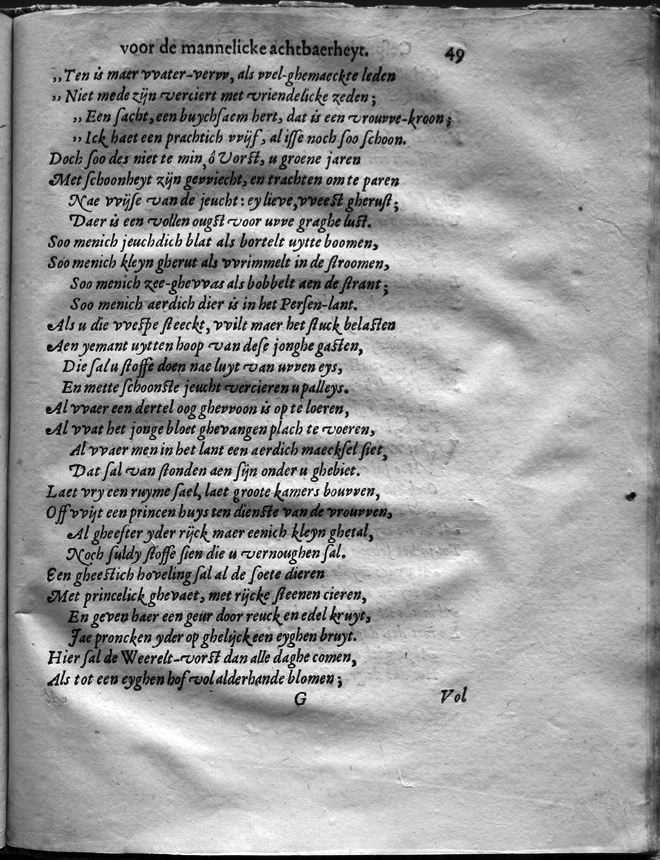 voor de mannelicke achtbaerheyt. 49
„Ten is maer vvater-vervv, als vvel-ghemaeckte leden
„ Niet mede zijn verciert met vriendelicke zeden;
„ Een sacht, een buychsaem hert, dat is een vrouvve-kroon;
„ Ick haet een prachtich vvijf, al isse noch soo schoon.
Doch soo des niet te min, ô Vorst, u groene jaren
Met schoonheyt zijn gevviecht, en trachten om te paren
Nae vvijse van de jeucht: ey lieve, vveest gherust;
Daer is een vollen ougst voor uvve graghe lust.
Soo menich jeuchdich blat als bortelt uytte boomen,
Soo menich kleyn gherut als vvrimmelt in de stroomen,
Soo menich zee-ghevvas als bobbelt aen de strant;
Soo menich aerdich dier is in het Persen-lant.
Als u die vvespe steeckt, vvilt maer het stuck belasten
Aen yemant uytten hoop van dese jonghe gasten,
Die sal u stoffe doen nae luyt van uvven eys,
En mette schoonste jeucht vercieren u palleys.
Al vvaer een dertel oog ghevvoon is op te loeren,
Al vvat het jonge bloet ghevangen plach te voeren,
Al vvaer men in het lant een aerdich maecksel siet,
Dat sal van stonden aen sijn onder u ghebiet.
Laet vry een ruyme sael, laet groote kamers bouvven,
Off vvijt een princen huys ten dienste van de vrouvven,
Al gheefter yder rijck maer eenich kleyn ghetal,
Noch suldy stoffe sien die u vernoughen sal.
Een gheestich hoveling sal al de soete dieren
Met princelick ghevaet, met rijcke steenen cieren,
En geven haer een geur door reuck en edel kruyt,
Jae proncken yder op ghelijck een eyghen bruyt.
Hier sal de Weerelt-vorst dan alle daghe comen,
Als tot een eyghen hof vol alderhande blomen;
G Vol